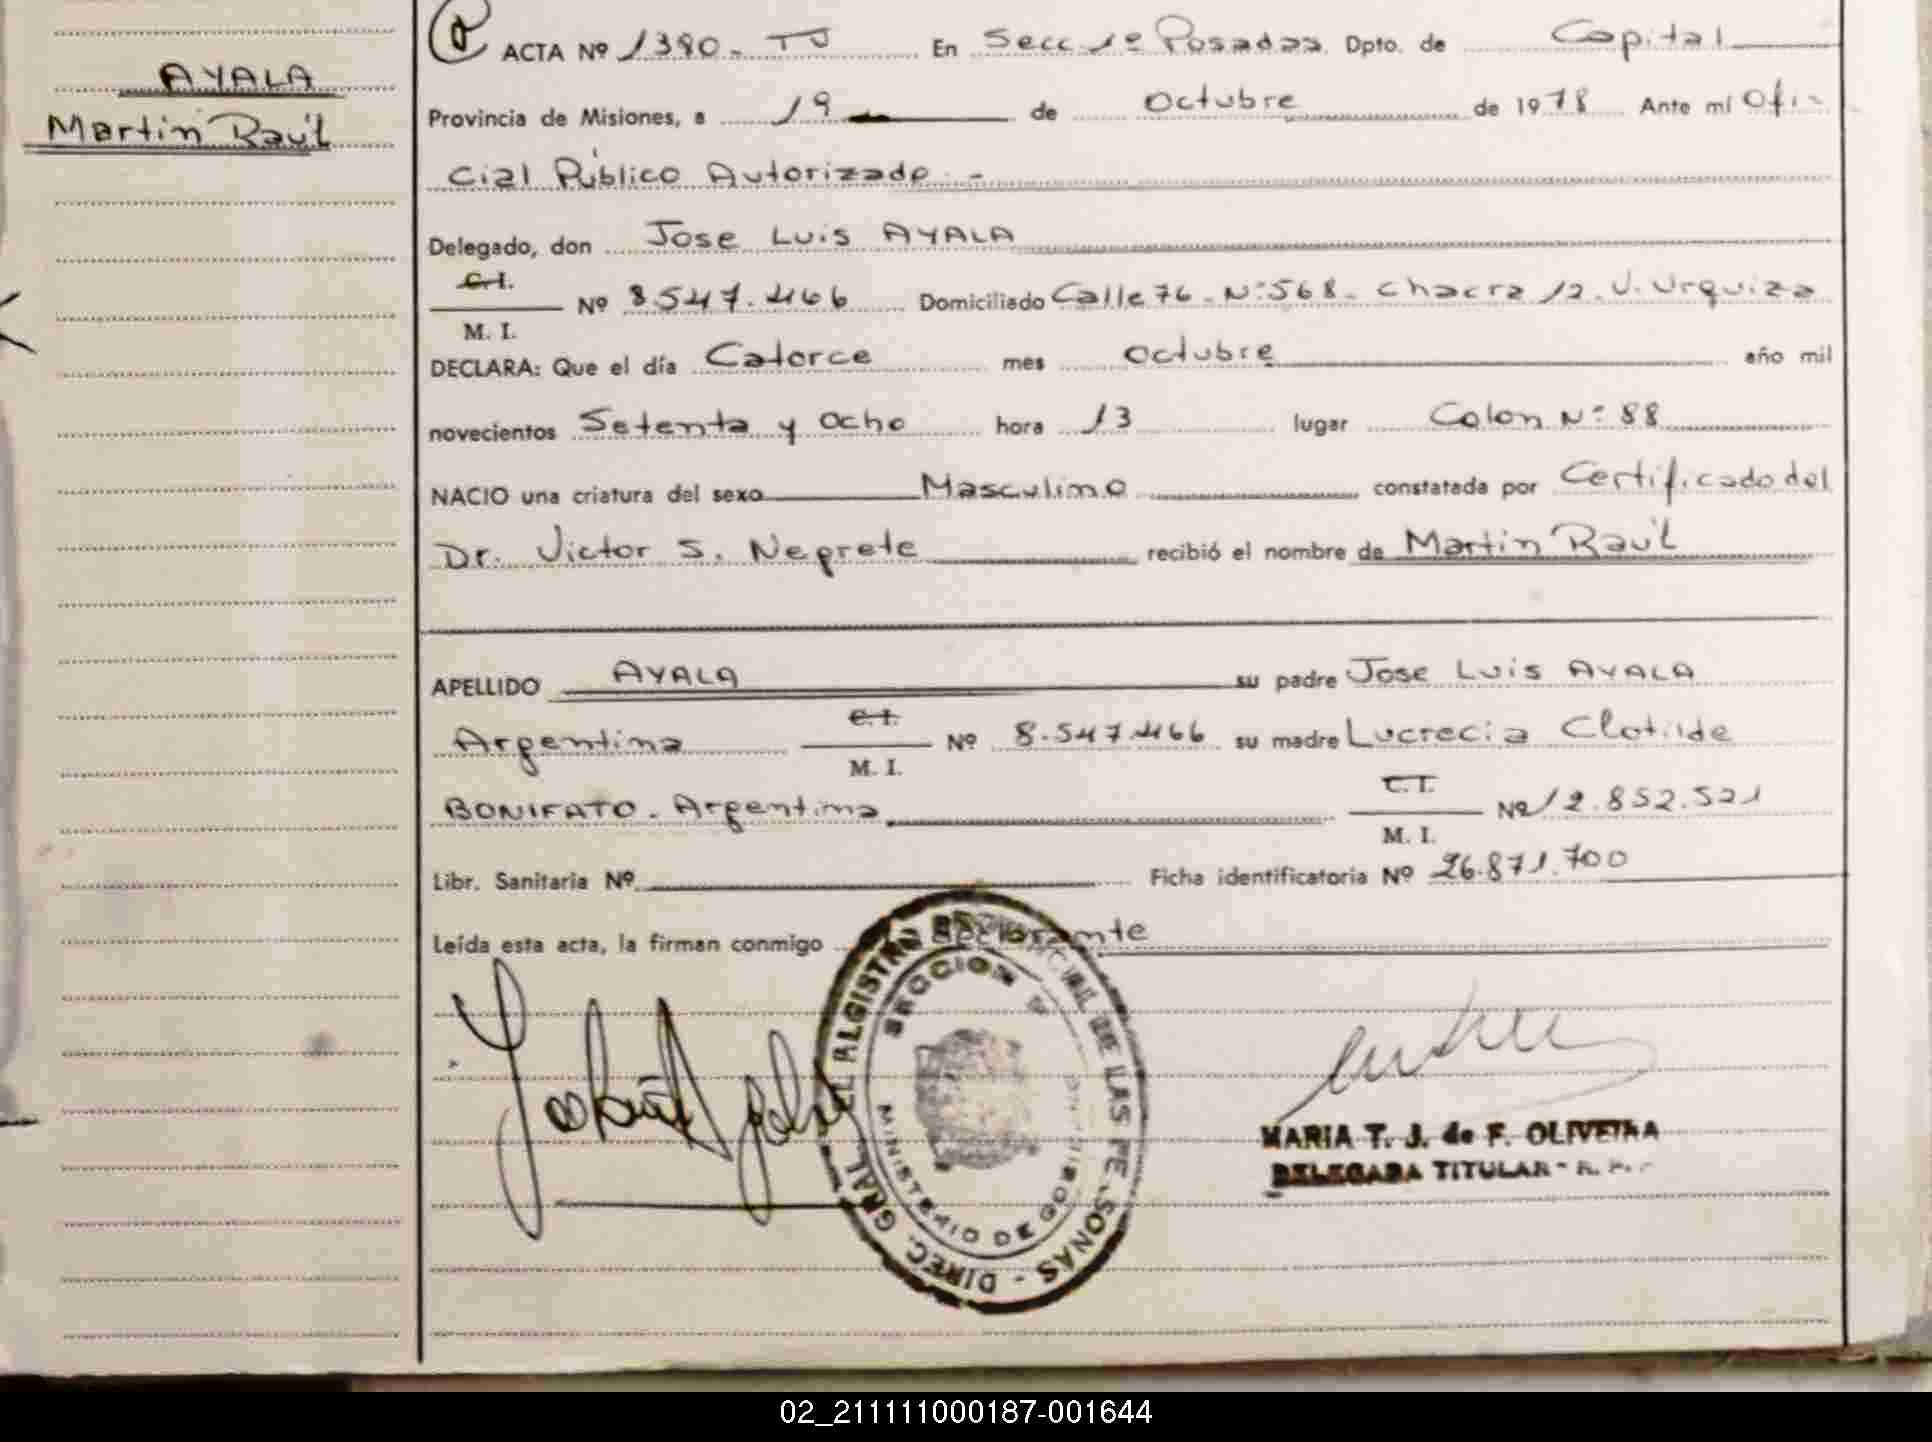 AYALA
Martin Raúl
ACTA Nº 1390- TJ En Secc 1º Posadas Dpto. de Capital
Provincia de Misiones, a 19 de Octubre de 1978 Ante mí Ofi-
cial Público Autorizado.-
Delegado, don Jose Luis AYALA
C.I.
M. I.
Nº 8.547.466 Domiciliado Calle 76 - Nº 568 - Chacra 12. V. Urquiza
DECLARA: Que el día Catorce mes octubre año mil
novecientos Setenta y ocho hora 13 lugar Colon Nº 88
NACIO una criatura del sexo Masculino constatada por Certificado del
Dr. Victor S. Negrete recibió el nombre de Martin Raúl
APELLIDO AYALA su padre Jose Luis AYALA
Argentina C.I. M. I. Nº 8.547.466 su madre Lucrecia Clotilde
BONIFATO. Argentina C.I. M. I. Nº 12.852.521
Libr. Sanitaria Nº Ficha identificatoria Nº 26.871.700
Leída esta acta, la firman conmigo declarante
DIREC. GRAL. DE LAS PERSONAS
SECCION
MINISTERIO DE
MARIA T. J. de F. OLIVEIRA
DELEGADA TITULAR - R. P.
02_211111000187-001644